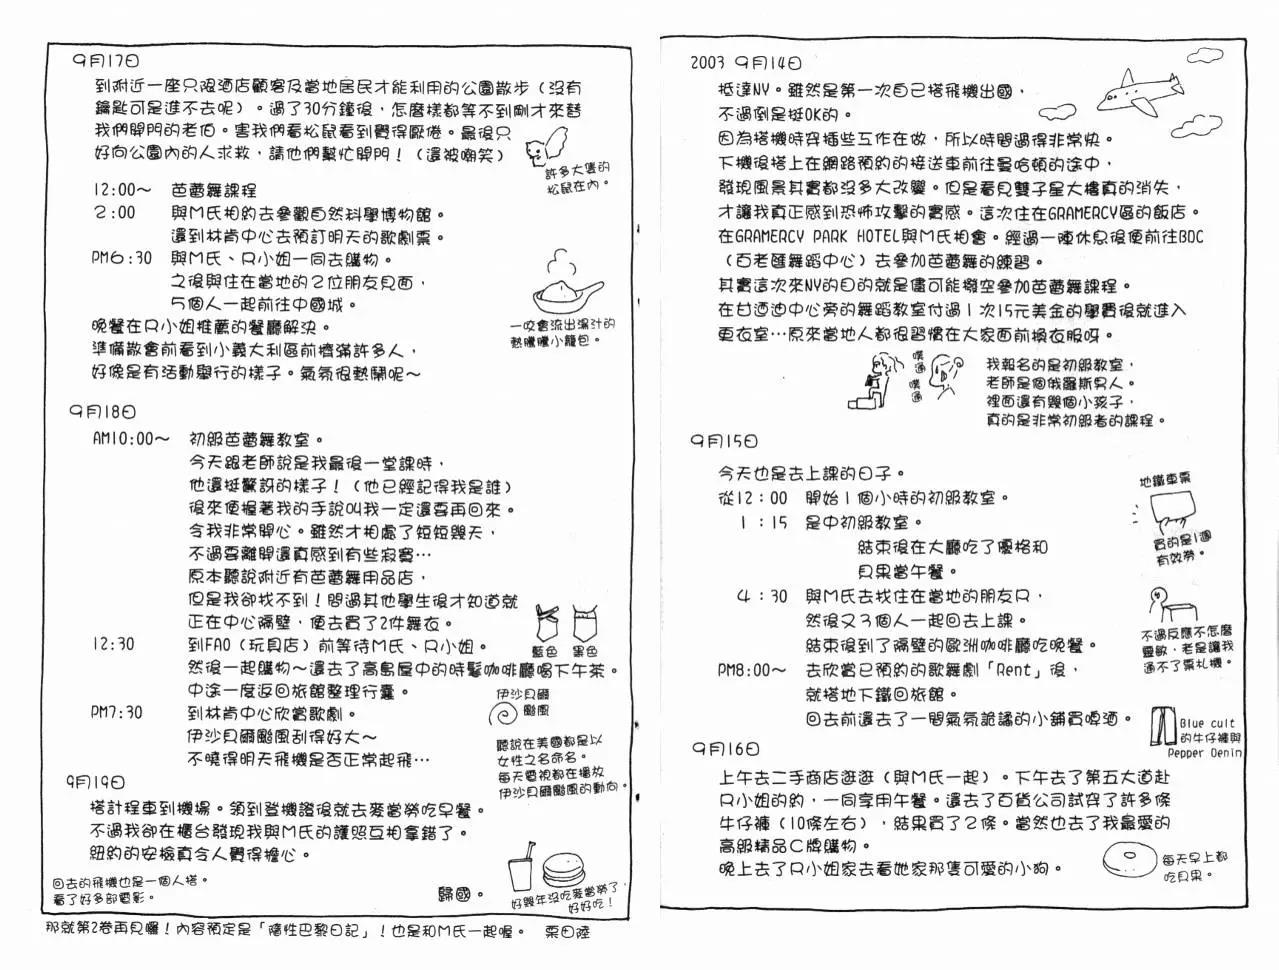 2003 9月14日
抵達NY。雖然是第一次自己搭飛機出國，
不過倒是挺OK的。
因為搭機時穿插些工作在做，所以時間過得非常快。
下機後搭上在網路預約的接送車前往曼哈頓的途中，
發現風景其實都沒多大改變。但是看見雙子星大樓真的消失，
才讓我真正感到恐怖攻擊的實感。這次住在GRAMERCY區的飯店。
在GRAMERCY PARK HOTEL與M氏相會。經過一陣休息後便前往BDC
（百老匯舞蹈中心）去參加芭蕾舞的練習。
其實這次來NY的目的就是儘可能撥空參加芭蕾舞課程。
在甘迺迪中心旁的舞蹈教室付過1次15元美金的學費後就進入
更衣室…原來當地人都很習慣在大家面前換衣服呀。
噗通
噗通
我報名的是初級教室，
老師是個俄羅斯男人。
裡面還有幾個小孩子，
真的是非常初級者的課程。
9月15日
今天也是去上課的日子。
從12：00 開始1個小時的初級教室。
1：15 是中初級教室。
結束後在大廳吃了優格和
貝果當午餐。
4：30 與M氏去找住在當地的朋友R，
然後又3個人一起回去上課。
結束後到了隔壁的歐洲咖啡廳吃晚餐。
PM8:00～ 去欣賞已預約的歌舞劇「Rent」後，
就搭地下鐵回旅館。
回去前還去了一間氣氛詭譎的小舖買啤酒。
地鐵車票
買的是1週
有效券。
不過反應不怎麼
靈敏，老是讓我
過不了票札機。
Blue cult
的牛仔褲與
Pepper Denin
9月16日
上午去二手商店逛逛（與M氏一起）。下午去了第五大道赴
R小姐的約，一同享用午餐。還去了百貨公司試穿了許多條
牛仔褲（10條左右），結果買了2條。當然也去了我最愛的
高級精品C牌購物。
晚上去了R小姐家去看她家那隻可愛的小狗。
每天早上都
吃貝果。
9月17日
到附近一座只限酒店顧客及當地居民才能利用的公園散步（沒有
鑰匙可是進不去呢）。過了30分鐘後，怎麼樣都等不到剛才來替
我們開門的老伯。害我們看松鼠看到覺得厭倦。最後只
好向公園內的人求救，請他們幫忙開門！（還被嘲笑）
許多大隻的
松鼠在內。
12:00～ 芭蕾舞課程
2：00 與M氏相約去參觀自然科學博物館。
還到林肯中心去預訂明天的歌劇票。
PM6：30 與M氏、R小姐一同去購物。
之後與住在當地的2位朋友見面，
5個人一起前往中國城。
晚餐在R小姐推薦的餐廳解決。
準備散會前看到小義大利區前擠滿許多人，
好像是有活動舉行的樣子。氣氛很熱鬧呢～
一咬會流出湯汁的
熱騰騰小籠包。
9月18日
AM10:00～ 初級芭蕾舞教室。
今天跟老師說是我最後一堂課時，
他還挺驚訝的樣子！（他已經記得我是誰）
後來便握著我的手說叫我一定還要再回來。
令我非常開心。雖然才相處了短短幾天，
不過要離開還真感到有些寂寞…
原本聽說附近有芭蕾舞用品店，
但是我卻找不到！問過其他學生後才知道就
正在中心隔壁，便去買了2件舞衣。
藍色 黑色
12:30 到FAO（玩具店）前等待M氏、R小姐。
然後一起購物～還去了高島屋中的時髦咖啡廳喝下午茶。
中途一度返回旅館整理行囊。
PM7:30 到林肯中心欣賞歌劇。
伊沙貝爾颱風刮得好大～
不曉得明天飛機是否正常起飛…
伊沙貝爾
颱風
聽說在美國都是以
女性之名命名。
每天電視都在播放
伊沙貝爾颱風的動向。
9月19日
搭計程車到機場。領到登機證後就去麥當勞吃早餐。
不過我卻在櫃台發現我與M氏的護照互相拿錯了。
紐約的安檢真令人覺得擔心。
回去的飛機也是一個人搭。
看了好多部電影。
歸國。
好幾年沒吃麥當勞了，
好好吃！
那就第2卷再見囉！內容預定是「隨性巴黎日記」！也是和M氏一起喔。 栗田陸